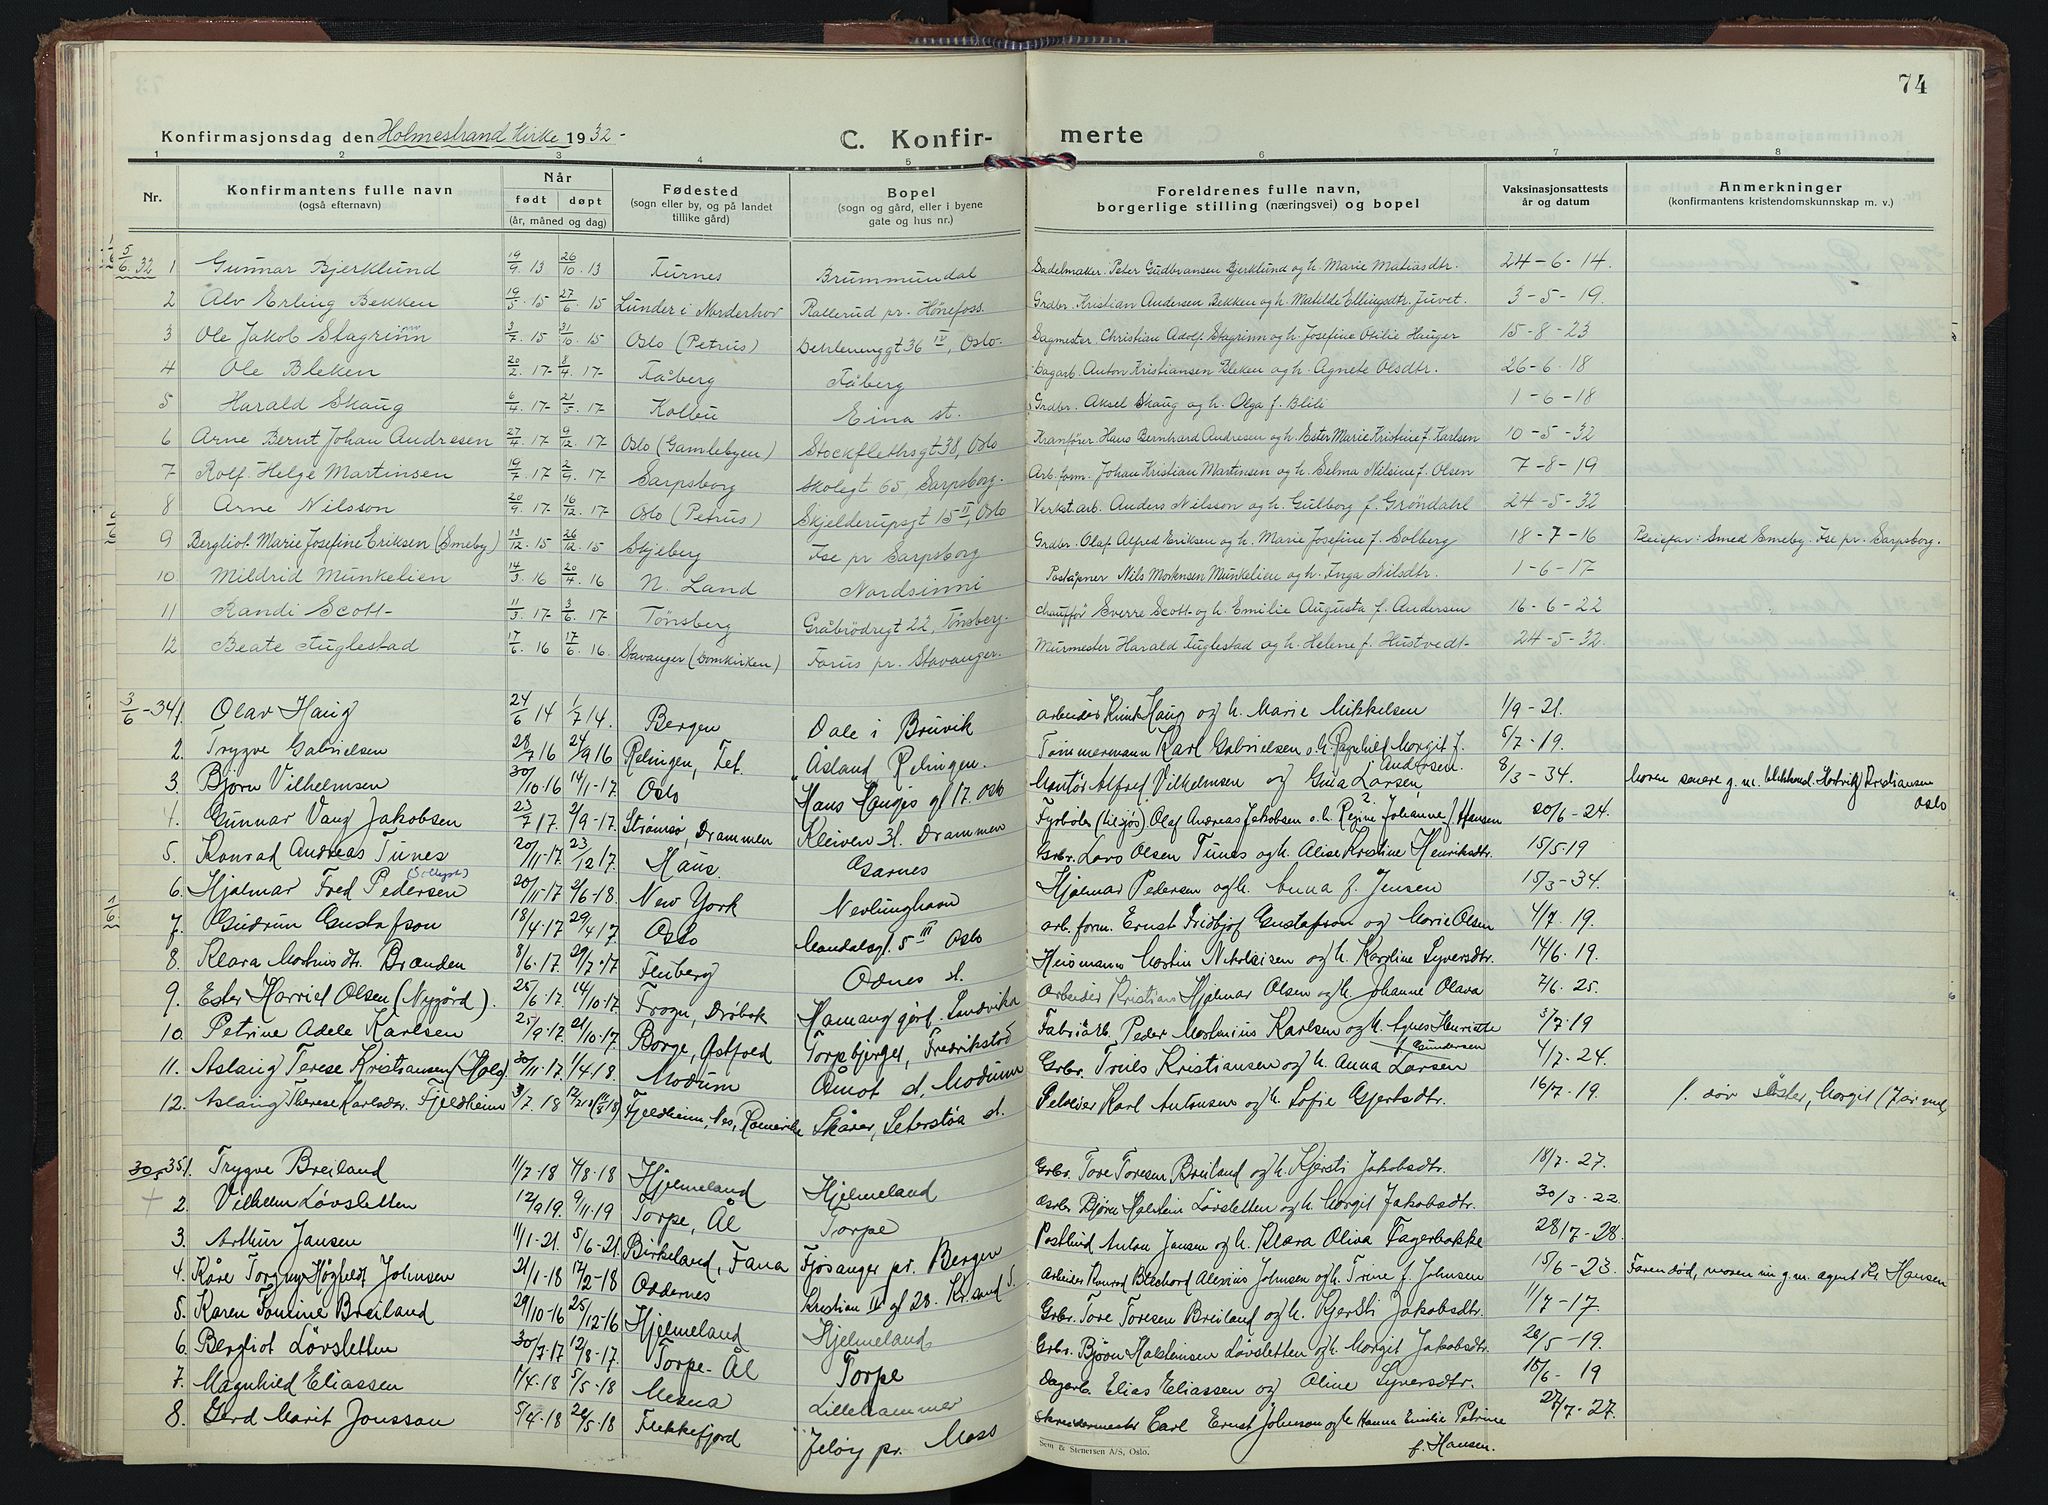 74
Konfirmasjonsdag den Holmestrand Kirke 1932-
C. Konfir- merte
1 2 3 4 5 6 7 8
Nr. Konfirmantens fulle navn (også efternavn) Når født døpt (år, måned og dag) Fødested (sogn eller by, og på landet tillike gård) Bopel (sogn og gård, eller i byene gate og hus nr.) Foreldrenes fulle navn, borgerlige stilling (næringsvei) og bopel Vaksinasjonsattests år og datum Anmerkninger (konfirmantens kristendomskunnskap m. v.)
5/6. 32 1 Gunnar Bjerklund 19/9. 13 26/10. 13 Furnes Brummundal Sadelmaker. Peter Gudbransen Bjerklund og h. Marie Matiasdtr. 24-6-14.
2 Alv Erling Bekken 19/5. 15 27/6. 15 Lunder i Norderhov Rallerud pr. Hönefoss. Grdbr. Kristian Andersen Bekken og h. Matilde Ellingsdtr. Juvet. 3-5-19.
3 Ole Jakob Slagrinn 3/7. 15 31/10. 15 Oslo (Petrus) Dehlenenggt 36 IV, Oslo. Sagmester. Christian Adolf Slagrinn og h. Josefine Otilie Hauger 15-8-23
4 Ole Bleken 20/2. 17- 8/4. 17- Fåberg Fåberg Dagarb. Anton Kristiansen Bleken og h. Agnete Olsdtr. 26-6-18
5 Harald Skaug 6/4. 17- 21/5. 17- Kolbu Eina st. Grdbr. Aksel Skaug og h. Olga f. Blili 1-6-18
6 Arne Bernt Johan Andresen 27/4. 17 9/12. 17 Oslo (Gamlebyen) Stockflethsgt 38, Oslo Kranfører Hans Bernhard Andresen og h. Ester Marie Kristine f. Karlsen 10-5-32
7 Rolf Helge Martinsen 19/7. 17 2/9. 17 Sarpsborg Skolegt 65, Sarpsborg. Arb. form. Johan Kristian Martinsen og h. Selma Nilsine f. Olsen 7-8-19
8 Arne Nilsson 20/9. 17- 16/12. 17- Oslo (Petrus) Skjelderupsgt 15 II, Oslo Verkst. arb. Anders Nilsson og h. Gulborg f. Gröndahl 24-5-32
9 Bergliot Marie Josefine Eriksen (Smeby) 13/12. 15 26/12. 15 Skjeberg Ise pr Sarpsborg Grdbr. Olaf Alfred Eriksen og h. Marie Josefine f. Solberg 18-7-16 Pleiefar: Smed Smeby. Ise pr. Sarpsborg.
10 Mildrid Munkelien 14/3. 16 20/4. 16 N. Land Nordsinni Poståpner Nils Mortensen Munkelien og h. Inga Nilsdtr. 1-6-17-
11 Randi Scott 11/3. 17- 3/6. 17- Tønsberg Gråbrödregt 22, Tønsberg. Chauffør Sverre Scott og h. Emilie Augusta f. Andersen 16-6-22
12 Beate Fuglestad 17/6. 16 17/6. 16 Stavanger (Domkirken) Forus pr. Stavanger. Murmester Harald Fuglestad og h. Helene f. Hustvedt 24-5-32.
3/6 -34 1. Olav Haug 24/6 14 1/7 14. Bergen Dale i Bruvik Arbeider Knut Haug og h. Marie Mikkelsen 1/9-21.
2. Trygve Gabrielsen 28/7 16 24/9 16 Relingen, Fet. Åsland Relingen. Tømmermann Karl Gabrielsen o. h. Ragnhild Margit f. Andersen. 5/7-19.
3. Bjørn Vilhelmsen 30/10-16 14/11-17. Oslo Hans Hauges gt 17. Oslo Montør Alfred Vilhelmsen og Guia Larsen 8/3-34. Moren senere g. m. blikksmed. Hartvig Kristiansen Oslo
4. Gunnar Vang Jakobsen 23/7 17. 2/9-17. Strømsø, Drammen Kleiven 31. Drammen Fyrbøter (til sjös) Olaf Andreas Jakobsen o. h. Regine Johanne f. Hansen 20/6-24.
5. Konrad Andreas Tunes 20/11-17. 23/12 17. Haus Garnes Grbr. Lars Olsen Tunes og h. Alise Kristine Henriksdtr. 15/5-19
6. Hjalmar Fred Pedersen 20/11-17 2/6-18. New York Nevlunghavn Hjalmar Pedersen og h. Anna f. Jensen 15/3-34.
7. Gudrun Gustafson 18/4-17 29/4 17. Oslo Mandalsgt. 5 III Oslo arb. form. Ernst Fridtjof Gustafson og Marie Olsen 4/7. 19.
8. Klara Martinsdtr. Brænden 8/6-17. 29/7-17 Fluberg Odnes st. Heismann Martin Nikolaisen og h. Karoline Syversdtr. 14/6. 19.
9. Ester Harriet Olsen (Nygård). 25/6-17. 14/10-17. Frogn, Drøbak Hamang gård. Sandvika Arbeider Kristian Hjalmar Olsen og h. Johanne Olava 7/6. 25.
10. Petrine Adele Karlsen 25/9-17. 21/10-17. Borge, Østfold Torpbjerget, Fredrikstad Fabrikarb. Peder Martenius Karlsen og h. Agnes Henriette f. Gundersen 3/7-19
11. Aslaug Terese Kristiansen (Moen) 30/11-17. 1/4-18. Modum Åmot st. Modum Grbr. Truls Kristiansen og h. Anna Larsen 4/7-24.
12. Aslaug Therese Karlsdtr. Fjeldheim 3/7. 18 Fjeldheim, Nes, Romerike Skårer, Seterstøa st. Peloeier Karl Antonsen og h. Sofie Gjertsdtr. 16/7. 19. 1. döv söster, Margit
30/5 35 1. Trygve Breiland 11/7-18 4/8-18 Hjelmeland Hjelmeland Grbr. Tore Toresen Breiland og h. Kjersti Jakobsdtr. 18/7-27.
+ 2. Vilhelm Løvsletten 12/9 19. 9/11-19 Torpe, Ål Torpe Grbr. Bjørn Halstein Løvsletten og h. Margit Jakobsdtr. 30/3-22.
3. Arthur Jansen 11/1-21. 5/6-21. Birkeland, Fana Fjøsanger pr. Bergen Postbud Anton Jansen og h. Klara Oliva Fagerbakke 28/7-28.
4. Kåre Torgny Høgholdt Johnsen 21/1-18 17/2-18 Oddernes Kristian IV gt 28. Kr.sand S. Arbeider Konrad Blechard Alexius Johnsen og h. Trine f. Johnsen 15/6-23. Faren död, moren nu g. m. agent Kr. Hansen
5. Karen Tomine Breiland 29/10-16 25/12-16 Hjelmeland Hjelmeland Grbr. Tore Toresen Breiland og h. Kjersti Jakobsdtr. 11/7-17.
6. Bergliot Løvsletten 30/7-17 12/8-17. Torpe-Ål Torpe Grbr. Bjørn Halsteinsen Løvsletten og h. Margit Jakobsdtr. 28/5-19.
7. Magnhild Eliassen 1/4-18 5/5-18 Mesna Lillehammer Dagarb. Elias Eliassen og Oline Syversdtr. 15/6-19
8. Gerd Marit Jonsson 5/4-18 26/5-18 Flekkefjord Jeløy pr. Moss Skreddermester Carl Ernst Johnson og h. Hanna Emilie Petrine f. Hansen. 27/7-27.
Sem & Stenersen A/S, Oslo.